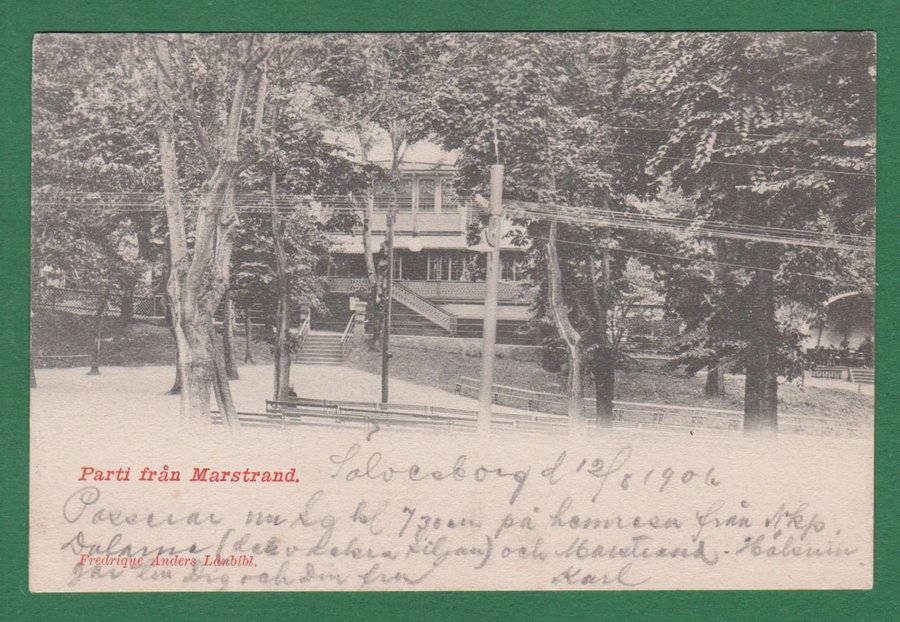 Parti från Marstrand.
Sölvesborg d 12/8 1906
Passerar nu kl 7 30 em på hemresa från Nkp,
Dalarne ( Siljan) och Marstrand. Hälsnin
Fredrique Anders Lånbibl.
till Dig och Din fru Karl